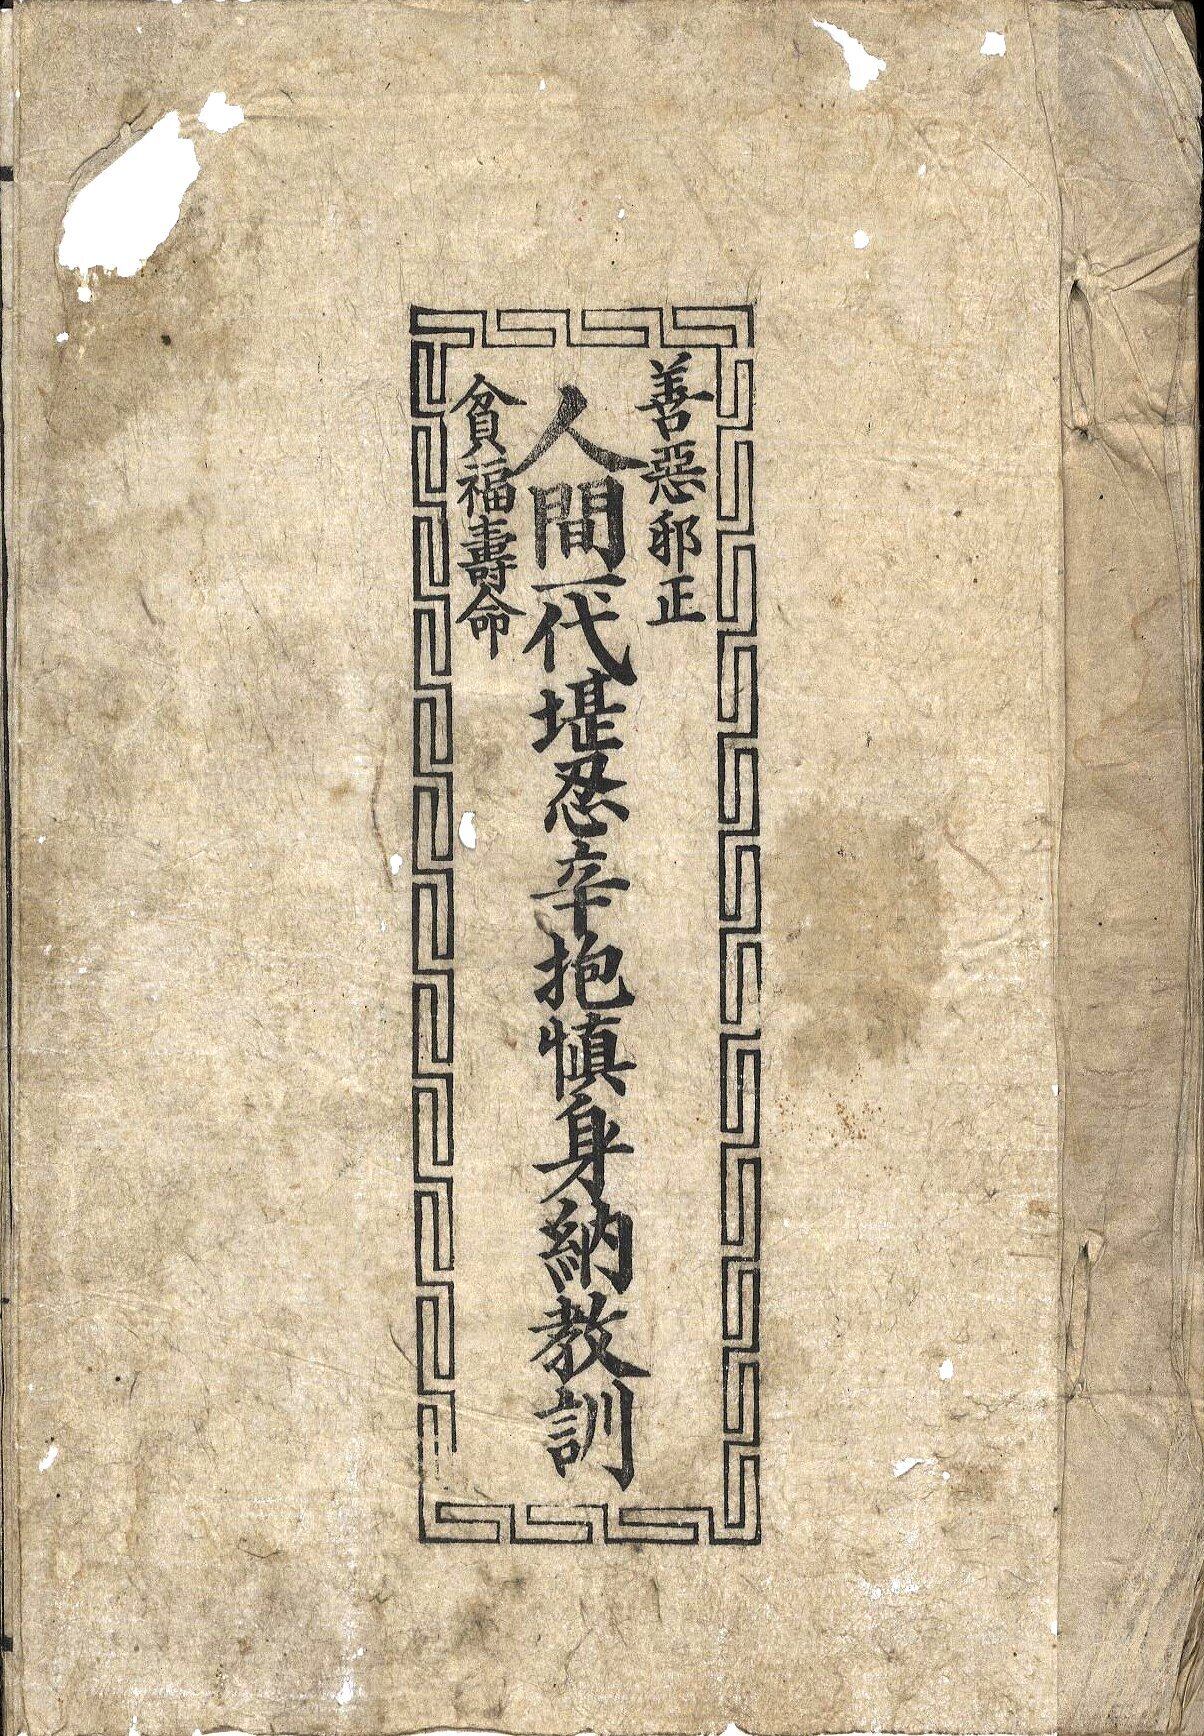 善惡邪正
人間一代堪忍辛抱慎身納教訓
貧福壽命